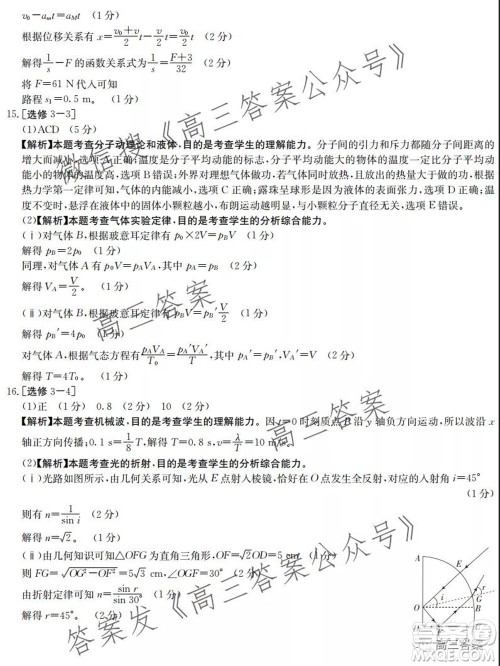 v₀−aₘt=a_Mt (1分)
根据位移关系有 x=(v₀+v)/2 t−v/2 t=v₀/2 t (2分)
解得 1/s−F 的函数关系式为 1/s=(F+3)/32 (2分)
将 F=61 N代入可知
路程 s₁=0.5 m。 (1分)
15.[选修3-3]
(1)ACD (5分)
【解析】本题考查分子动理论和液体,目的是考查学生的理解能力。分子间的引力和斥力都随分子间距离的
增大而减小,选项A正确;温度是分子平均动能的标志,分子平均动能大的物体的温度一定比分子平均动能
小的物体的温度高,选项B错误;外界对物体做功,若物体放热,且放出的热量大于做功的大小,根据
热力学第一定律可知,气体的内能减小,选项C正确;露珠呈球形是因为液体的表面张力,选项D正确;温度
不变时,悬浮在液体中的固体小颗粒越小,布朗运动越明显,与分子直径无关,选项E错误。
(2)【解析】本题考查气体实验定律,目的是考查学生的分析综合能力。
(ⅰ)对气体B,根据玻意耳定律有 p₀×2V=p_BV (2分)
解得 p_B=2p₀ (1分)
同理,对气体A有 p₀V=p_AV_A,其中 p_A=p_B (2分)
解得 V_A=V/2。 (1分)
(ⅱ)对气体B,根据玻意耳定律有 p_BV=p_B′V/2 (1分)
解得 p_B′=4p₀ (1分)
对气体A,根据气态方程有 p_AV_A/T₀=p_A′V_A′/T,其中 p_A′=p_B′ (1分)
解得 T=4T₀。 (1分)
16.[选修3-4]
(1)正 (1分) 0.8 (2分) 10 (2分)
【解析】本题考查机械波,目的是考查学生的理解能力。因 t=0时刻质点B沿 y 轴负方向运动,所以波沿 x
轴正方向传播;0.1 s=1/8 T,解得 T=0.8 s,v=λ/T=10 m/s。
(2)【解析】本题考查光的折射,目的是考查学生的分析综合能力。
(ⅰ)光路如图所示,由几何关系可知,光从E点射入棱镜,恰好在O点发生全反射,对应的入射角 i=45°
(1分)
则有 n=1/sin i (2分)
解得 n=√2。 (2分)
(ⅱ)由几何知识可知△OFG为直角三角形,OF=√2OD=5 cm (1分)
则 FG=√(OG²−OF²)=5√3 cm,∠OGF=30° (2分)
由折射定律可知 n=sin r/sin 30° (1分)
解得 r=45°。 (1分)
E
i
r
G
O
F
D
微信搜《高三答案公众号》
高三答案
高三答案
答案发《高三答案公众号》
高三答案